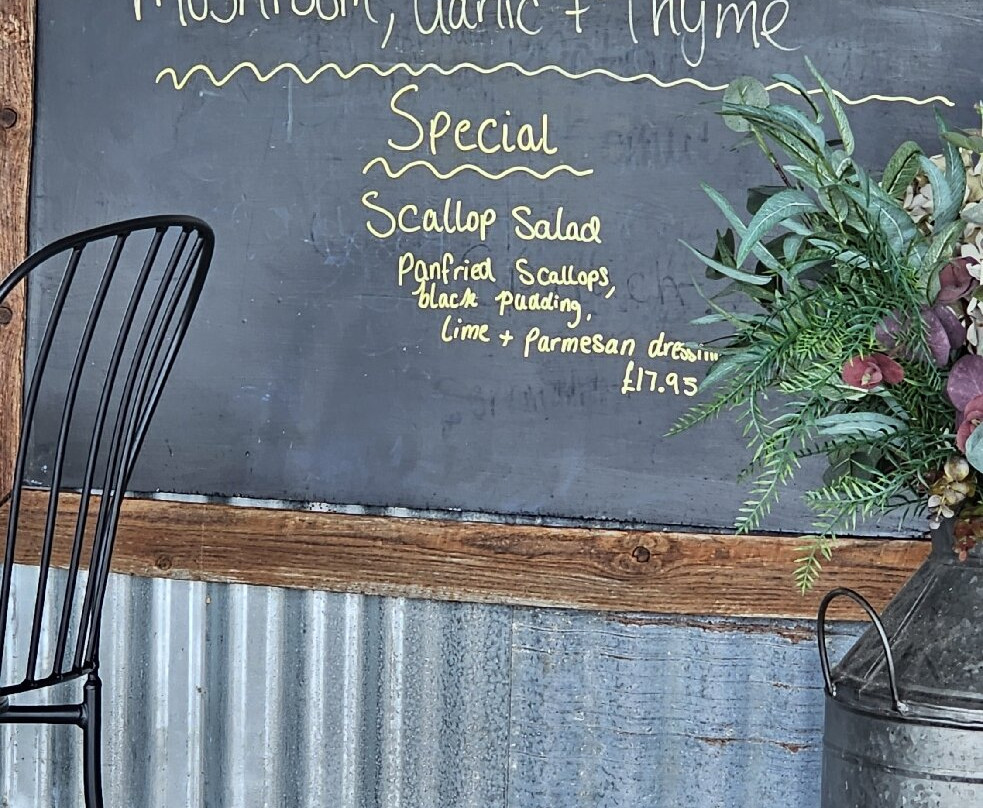 Mushroom, Garlic + Thyme
Special
Scallop Salad
Panfried Scallops,
black pudding,
lime + parmesan
£17.95